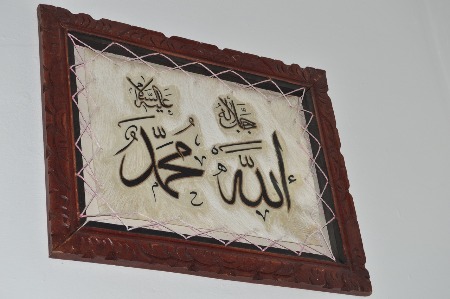 جل جلاله عليه السلام
الله محمد